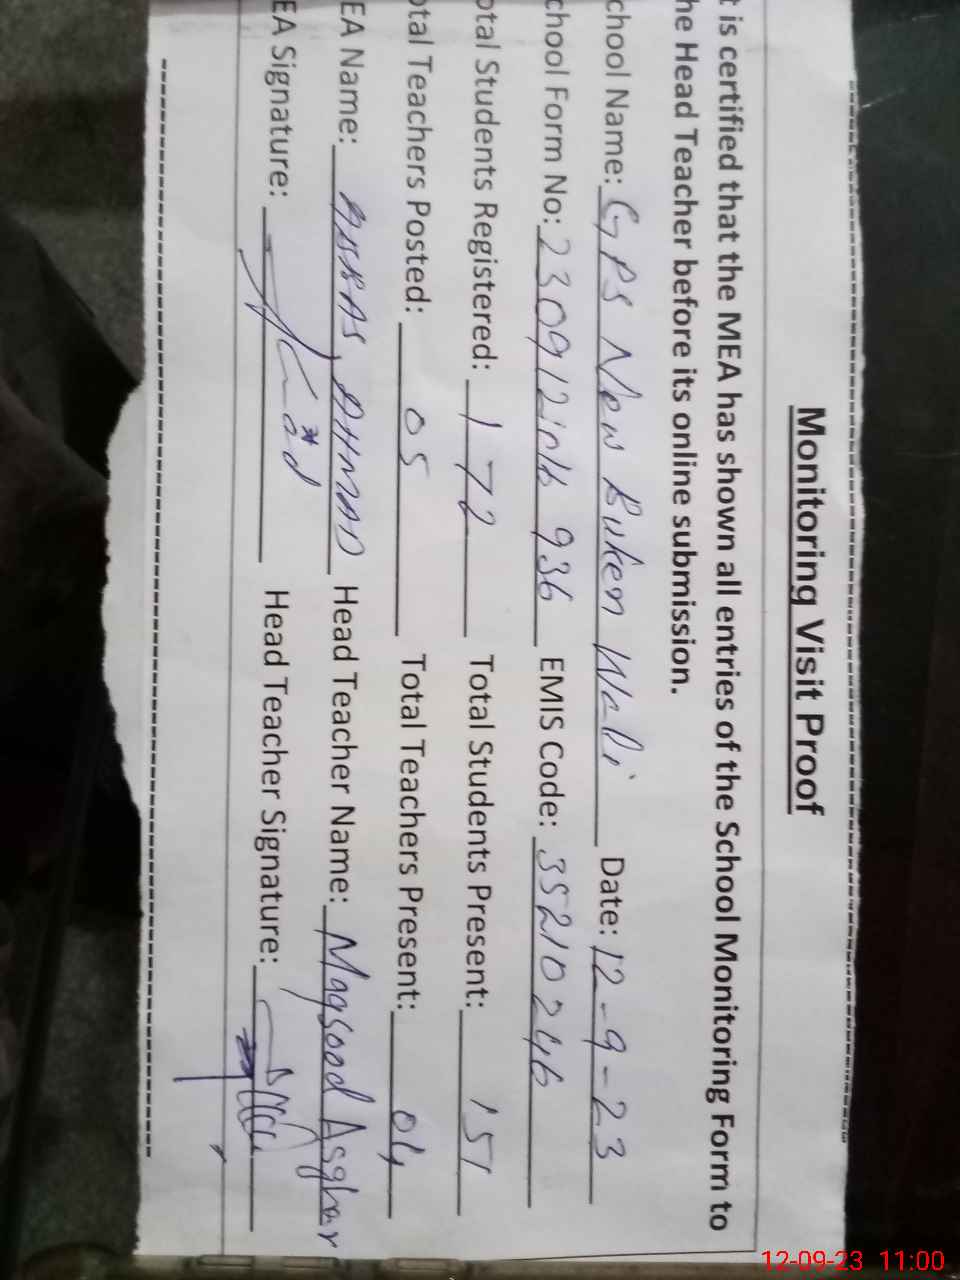 Monitoring Visit Proof
t is certified that the MEA has shown all entries of the School Monitoring Form to
he Head Teacher before its online submission.
chool Name: GPS New Buken Wali Date: 12-9-23
chool Form No: EMIS Code: 35210246
otal Students Registered: 172 Total Students Present: 151
otal Teachers Posted: 05 Total Teachers Present: 04
EA Name: ABBAS AHMAD Head Teacher Name: Maqsood Asghar
EA Signature: Head Teacher Signature:
12-09-23 11:00